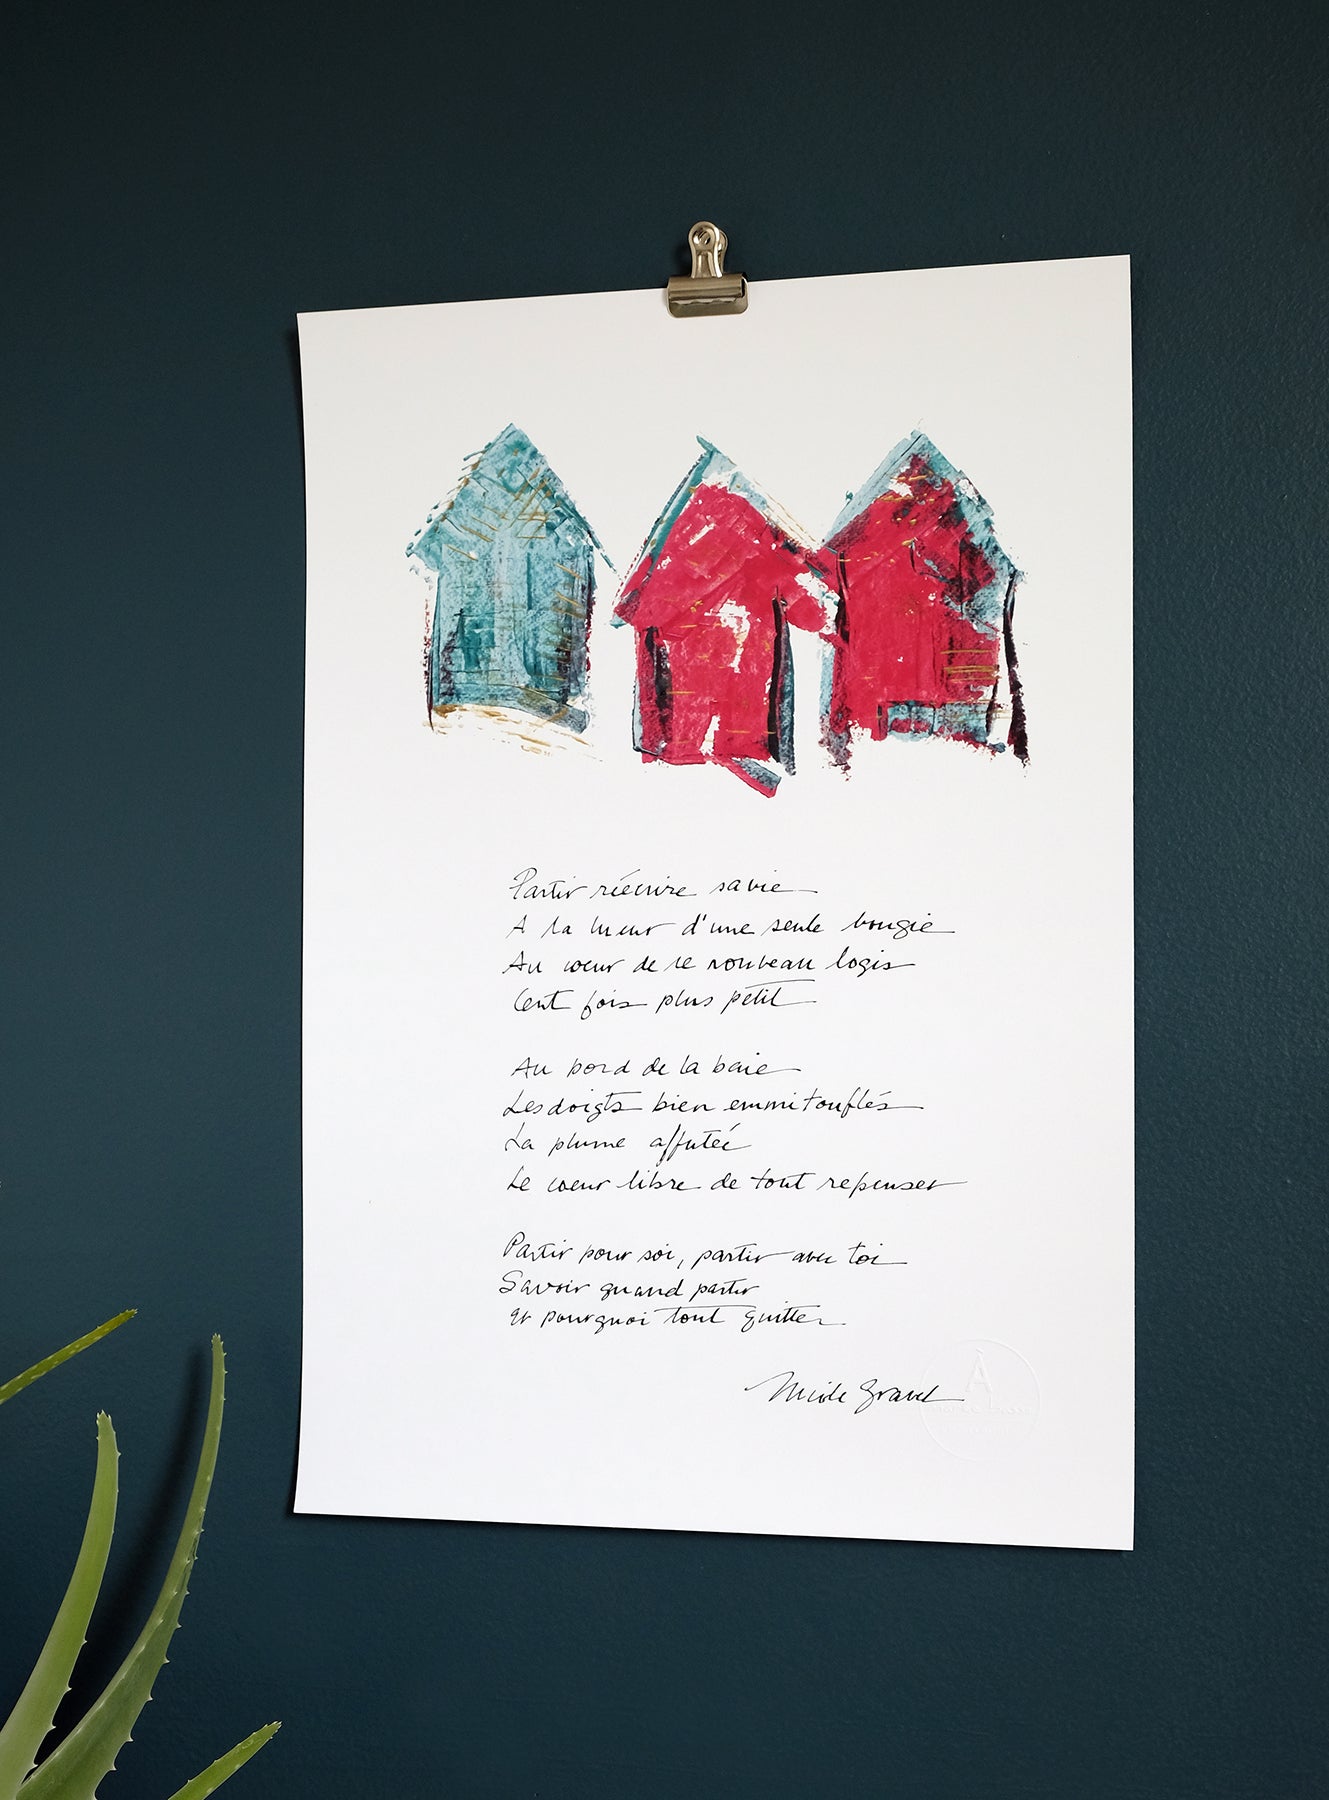 Partir réécrire sa vie
A la lueur d'une seule bougie
Au cœur de ce nouveau logis
Cent fois plus petit
Au bord de la baie
Les doigts bien emmitouflés
La plume affutée
Le cœur libre de tout repenser
Partir pour soi, partir avec toi
Savoir quand partir
et pourquoi tout quitter
Nicole Gravel
À